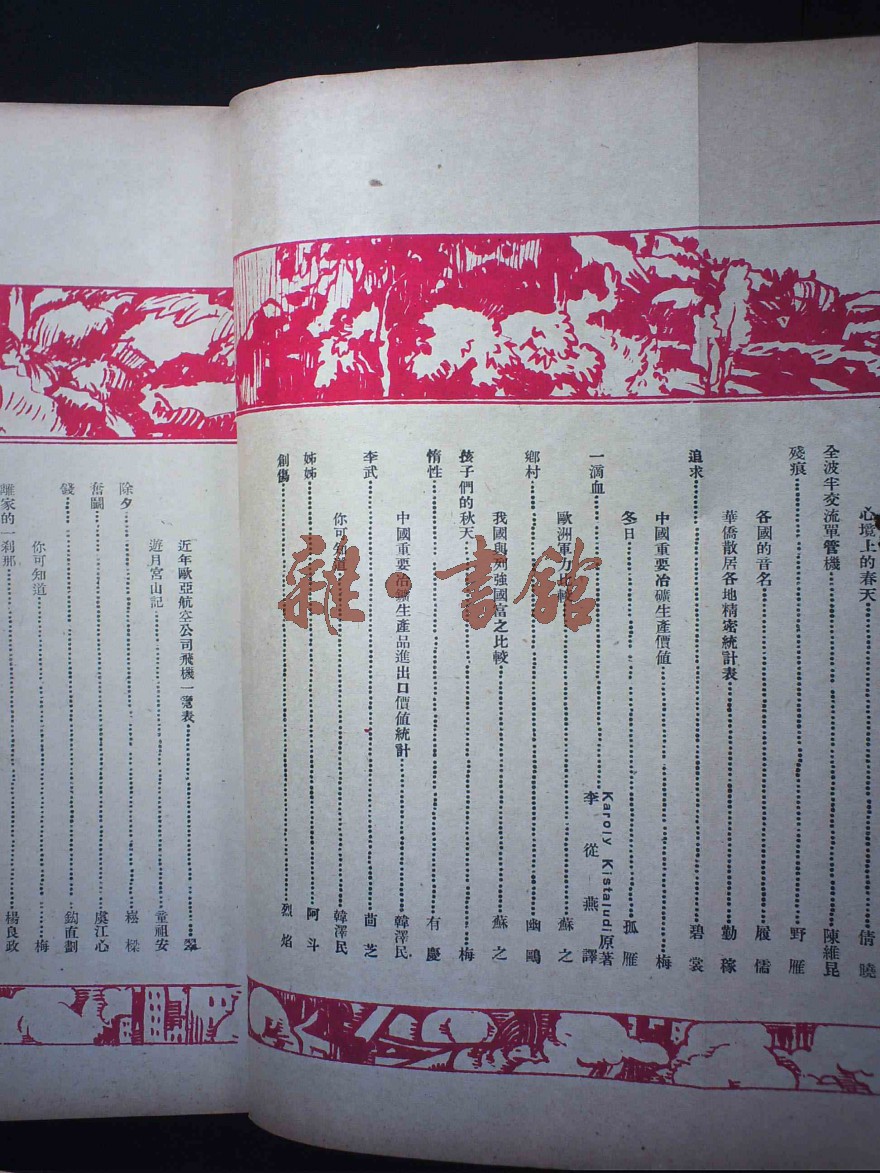 心境上的春天 倩曉
全波半交流單管機 陳維昆
殘痕 野雁
各國的音名 履儒
華僑散居各地精密統計表 勤稼
追求 碧裳
中國重要冶礦生產價値 梅
冬日 孤雁
一滴血 Karoly Kistaludi原著
李從燕譯
歐洲軍力比較 蘇之
鄉村 幽鷗
我國與列強國富之比較 蘇之
孩子們的秋天 梅
惰性 有慶
中國重要冶鑛生產品進出口價値統計 韓澤民
李武 茴芝
你可知道 韓澤民
姊姊 阿斗
創傷 烈焰
近年歐亞航空公司飛機一覽表 翠
遊月宮山記 童祖安
除夕 崧樑
奮鬭 虞江心
錢 鈎直劃
你可知道 梅
離家的一刹那 楊良政
雜·書館